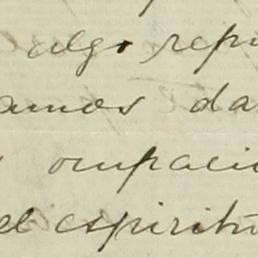 algo repu
amos da
ocupacio
el espiritu